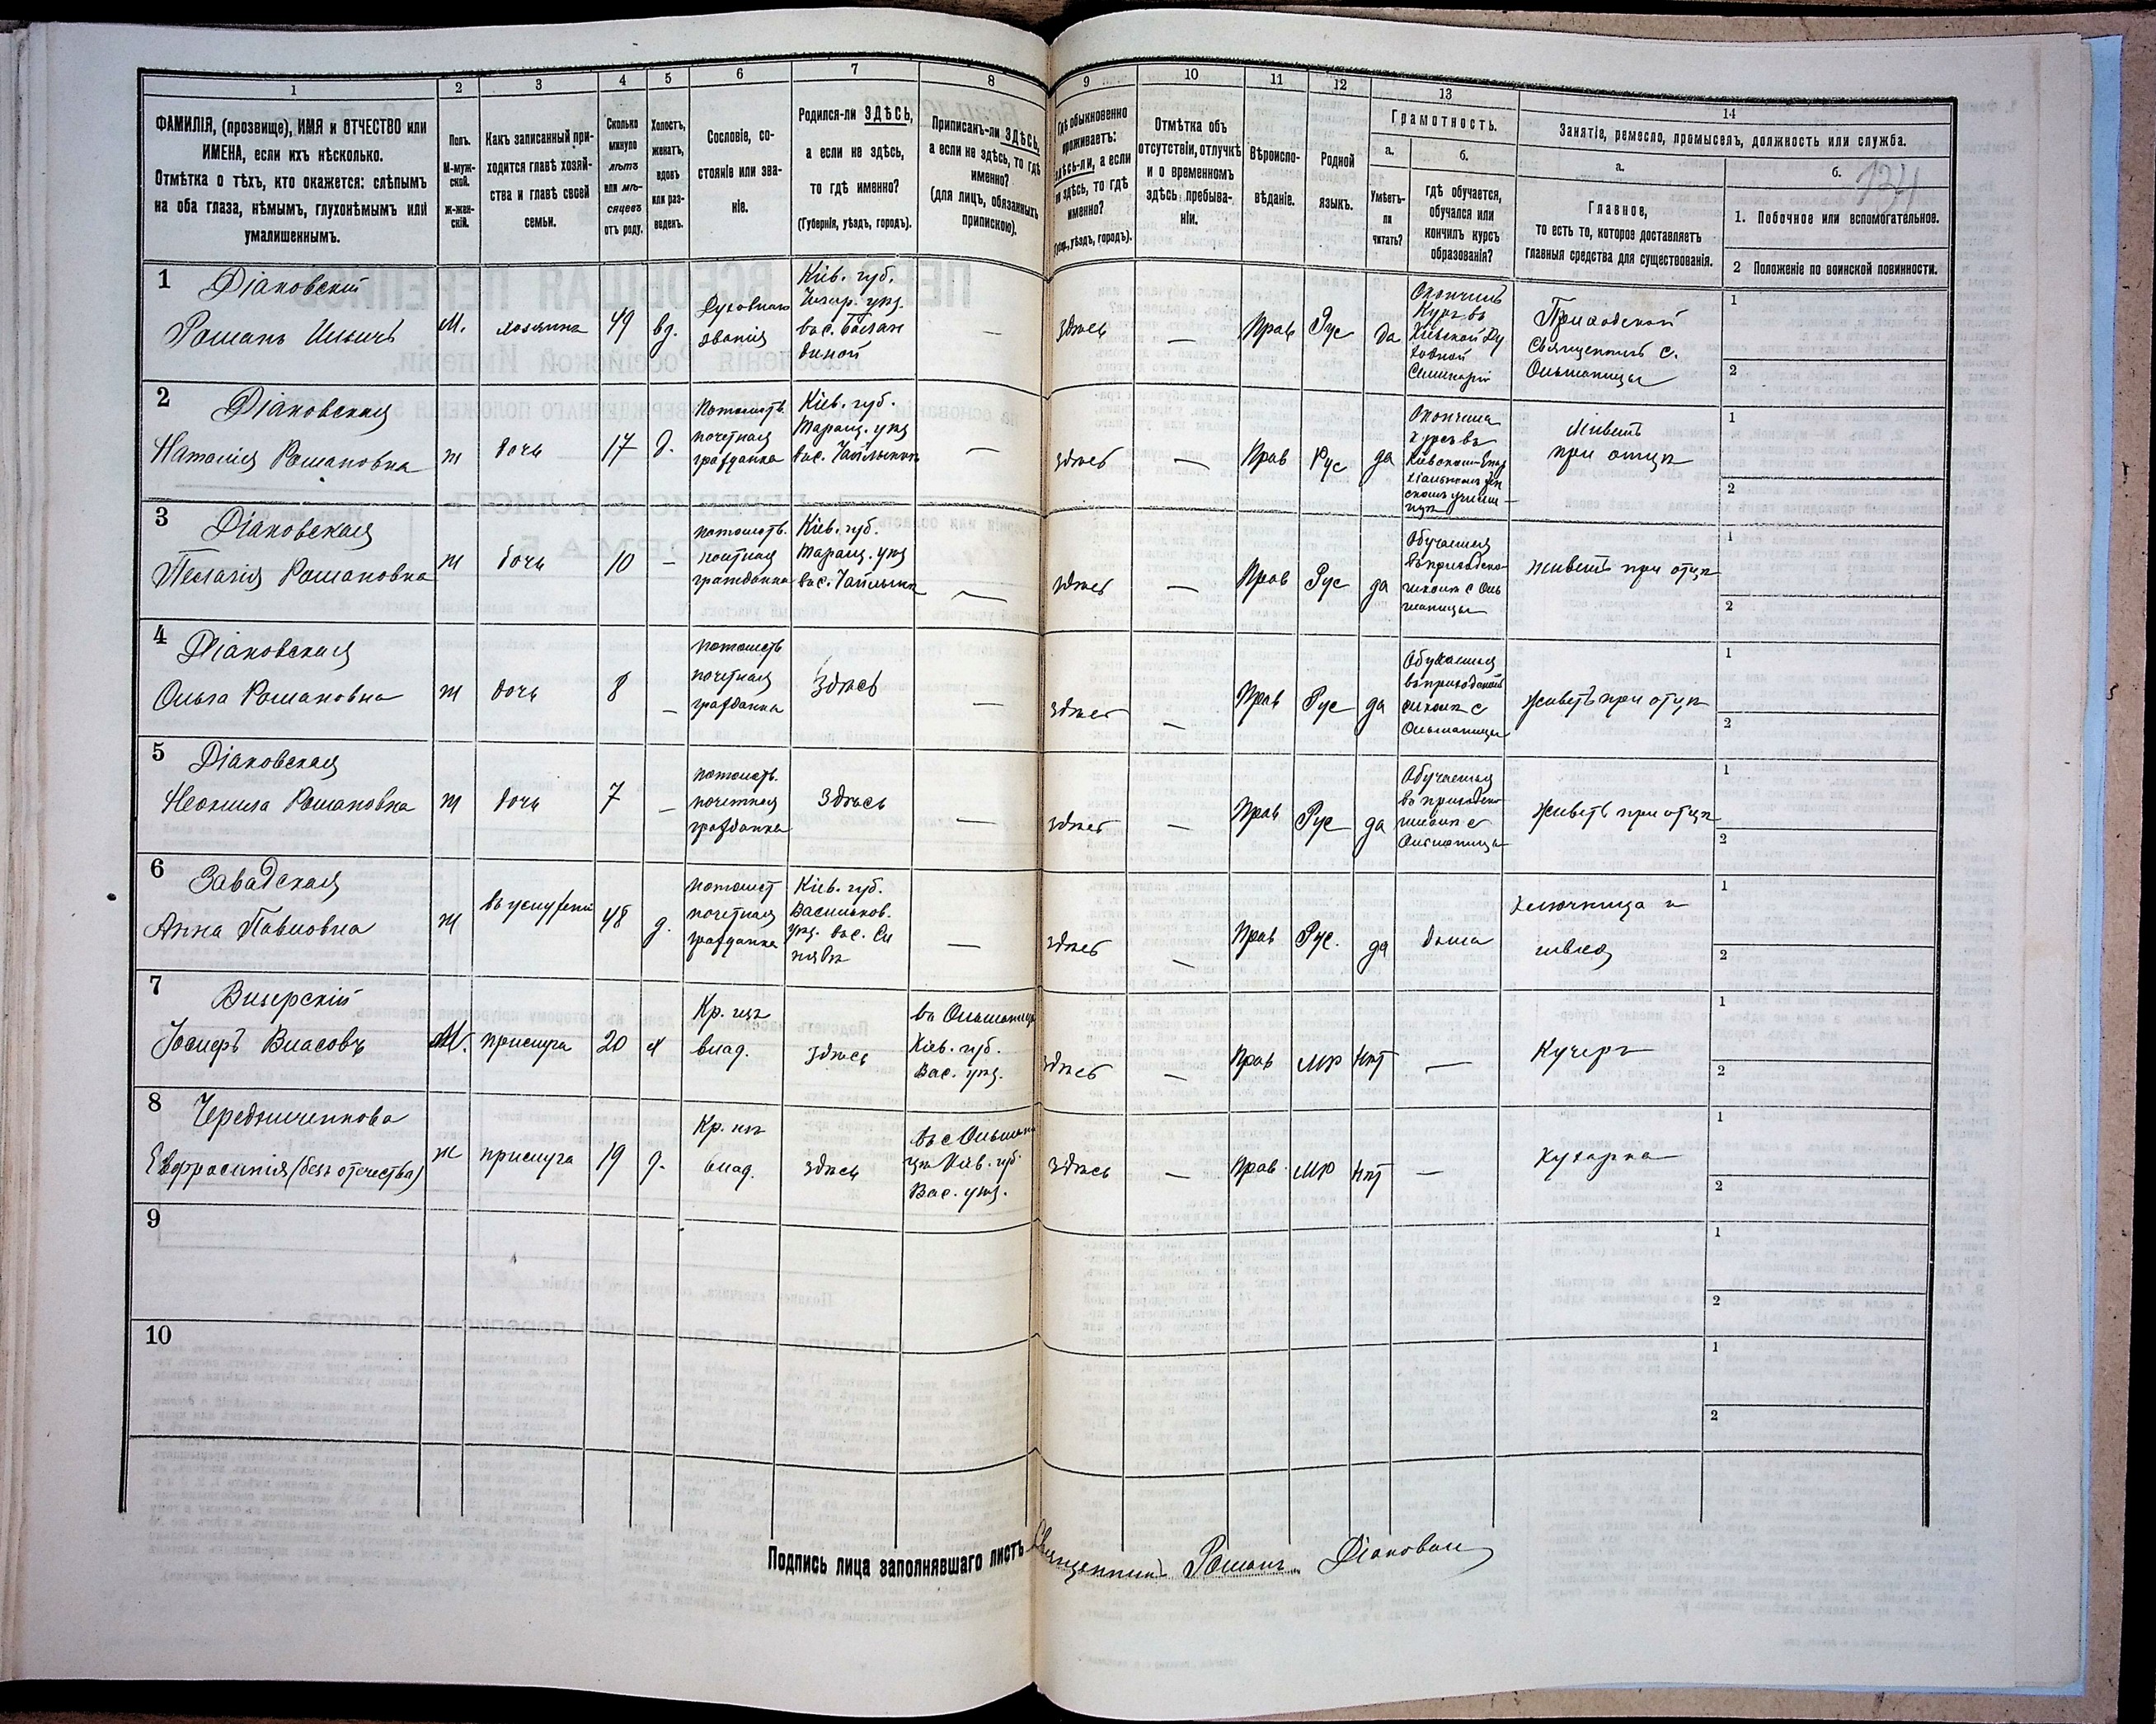 1 2 3 4 5 6 7 8 9 10 11 12 13 14
ФАМИЛІЯ, (прозвище), ИМЯ и ОТЧЕСТВО или
ИМЕНА, если ихъ нѣсколько.
Отмѣтка о тѣхъ, кто окажется: слѣпымъ
на оба глаза, нѣмымъ, глухонѣмымъ или
умалишеннымъ.
Полъ.
М-муж-
ской.
Ж-жен-
скій.
Какъ записанный при-
ходится главѣ хозяй-
ства и главѣ своей
семьи.
Сколько
минуло
лѣтъ
или мѣ-
сяцевъ
отъ роду.
Холостъ,
женатъ,
вдовъ
или раз-
веденъ.
Сословіе, со-
стояніе или зва-
ніе.
Родился-ли ЗДѢСЬ,
а если не здѣсь,
то гдѣ именно?
(Губернія, уѣздъ, городъ).
Приписанъ-ли ЗДѢСЬ,
а если не здѣсь, то гдѣ
именно?
(для лицъ, обязанныхъ
припискою).
Гдѣ обыкновенно
проживаетъ:
здѣсь-ли, а если
не здѣсь, то гдѣ
именно?
уѣздъ, городъ).
Отмѣтка объ
отсутствіи, отлучкѣ
и о временномъ
здѣсь пребыва-
ніи.
Вѣроиспо-
вѣданіе.
Родной
языкъ.
Грамотность.
а.
Умѣетъ-
ли
читать?
б.
гдѣ обучается,
обучался или
кончилъ курсъ
образованія?
Занятіе, ремесло, промыселъ, должность или служба.
а.
Главное,
то есть то, которое доставляетъ
главныя средства для существованія.
б.
134
1. Побочное или вспомогательное.
2 Положеніе по воинской повинности.
1 Діаковскій
Романъ Ильичъ
М.
хозяинъ
49
вд.
Духовнаго
званія
Кіев. губ.
Чигир. уѣз.
—
здѣсь
—
Прав
Рус
да
Окончилъ
Курсъ въ
Кіевской Ду
ховной
Семинаріи
Приходской
Священникъ с.
Ольшаницы
1
2
2 Діаковская
Наталія Романовна
ж
дочь
17
д.
потомств.
почетная
гражданка
Кіев. губ.
Таращ. уѣз
—
здѣсь
—
Прав
Рус
да
Окончила
курсъ въ
Живетъ
при отцѣ
1
2
3 Діаковская
Пелагія Романовна
ж
дочь
10
—
потомств.
почетная
гражданка
Кіев. губ.
Таращ. уѣз
—
здѣсь
—
Прав
Рус
да
Обучается
въ приходско
школѣ с Оль
шаницы
живетъ при отцѣ
1
2
4 Діаковская
Ольга Романовна
ж
дочь
8
—
потомств
почетная
гражданка
Здѣсь
—
здѣсь
—
Прав
Рус
да
Обучается
въ приходской
школѣ с
Ольшаницы
живетъ при отцѣ
1
2
5 Діаковская
Неонила Романовна
ж
дочь
7
—
потомств.
почетная
гражданка
Здѣсь
—
здѣсь
—
Прав
Рус
да
Обучается
въ приходско
школѣ с
Ольшаницы
живетъ при отцѣ
1
2
6 Завадская
Анна Павловна
ж
въ услуженіи
48
д.
потомст
почетная
гражданка
Кіев. губ.
Васильков.
уѣз. въ с. Си
нявѣ
—
здѣсь
—
Прав
Рус.
да
дома
ключница и
швея
1
2
7 Визерскій
Іосифъ Власовъ
М.
прислуга
20
х
Кр. изъ
влад.
здѣсь
въ Ольшаницѣ
Кіев. губ.
Вас. уѣз.
здѣсь
—
Прав
мр
нѣт
—
Кучеръ
1
2
8 Чередниченкова
Евфросинія (безъ отчества)
ж
прислуга
19
д.
Кр. изъ
влад.
здѣсь
въ с Ольшани
цѣ Кіев. губ
Вас. уѣз.
здѣсь
—
прав.
мр
нѣт
—
кухарка
1
2
9
1
2
10
1
2
Подпись лица заполнявшаго листъ Священникъ Романъ Діаковскій